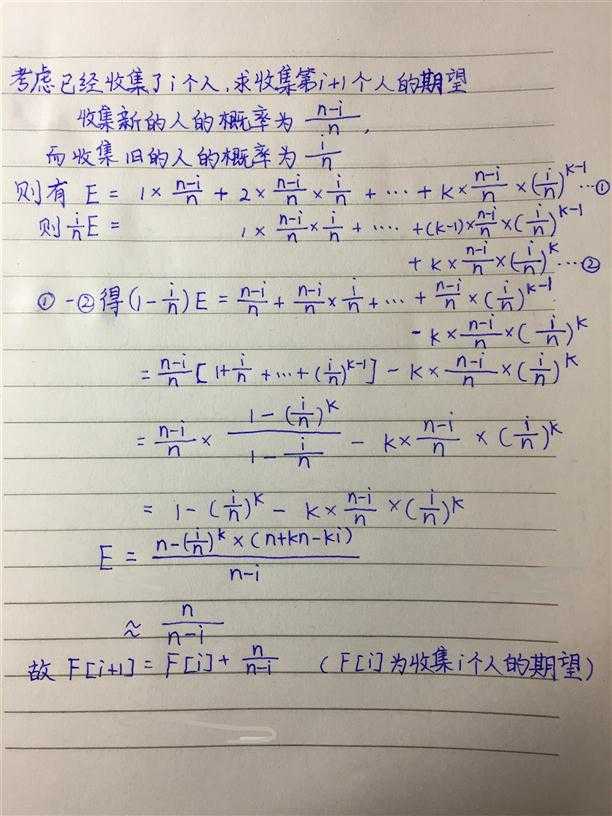 考虑已经收集了i个人,求收集第i+1个人的期望
收集新的人的概率为 \frac{n-i}{n},
而收集旧的人的概率为 \frac{i}{n}
则有 E = 1×\frac{n-i}{n} + 2×\frac{n-i}{n}×\frac{i}{n} + ⋯ + k×\frac{n-i}{n}×(\frac{i}{n})^{k-1} ⋯①
则\frac{i}{n}E = 1×\frac{n-i}{n}×\frac{i}{n} + ⋯ +(k-1)×\frac{n-i}{n}×(\frac{i}{n})^{k-1}
+ k×\frac{n-i}{n}×(\frac{i}{n})^{k} ⋯②
①-②得(1-\frac{i}{n})E = \frac{n-i}{n}+\frac{n-i}{n}×\frac{i}{n}+⋯+\frac{n-i}{n}×(\frac{i}{n})^{k-1}
- k×\frac{n-i}{n}×(\frac{i}{n})^{k}
= \frac{n-i}{n}[1+\frac{i}{n}+⋯+(\frac{i}{n})^{k-1}] - k×\frac{n-i}{n}×(\frac{i}{n})^{k}
= \frac{n-i}{n}×\frac{1-(\frac{i}{n})^{k}}{1-\frac{i}{n}} - k×\frac{n-i}{n}×(\frac{i}{n})^{k}
= 1-(\frac{i}{n})^{k} - k×\frac{n-i}{n}×(\frac{i}{n})^{k}
E = \frac{n-(\frac{i}{n})^{k}×(n+kn-ki)}{n-i}
≈ \frac{n}{n-i}
故 F[i+1] = F[i]+\frac{n}{n-i} (F[i]为收集i个人的期望)